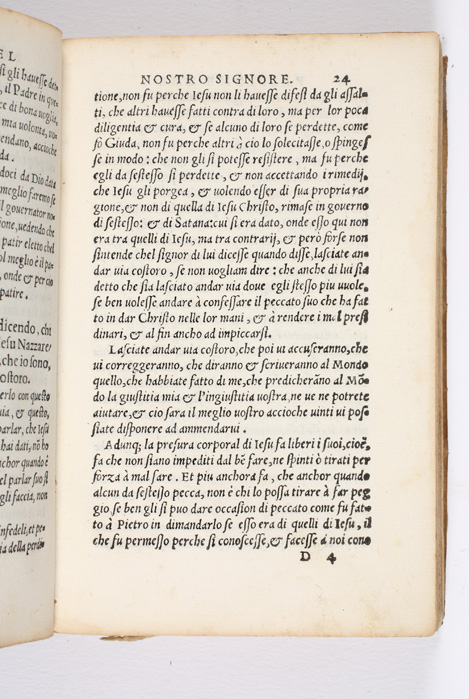 E L
si gli hauesse
il Padre in
ce di bona uoglia
mia uolonta, non
endano, accioche
da.
doci da Dio data
meglio faremo se
l gouernator no
tione, uedendo che
patir eletto chel
ol meglio è il
, onde & per cio
patire.
dicendo, chi
Iesu Nazzare/
, che io sono,
costoro.
erlo con questo
uia, & questo,
parlar, che Iesu
hai dati, nō ho
nchor quando è
el parlar suo si
gli faccia, non
infedeli, et pe-
ia della perdi
NOSTRO SIGNORE. 24
tione, non fu perche Iesu non li hauesse difesi da gli assal-
ti, che altri hauesse fatti contra di loro, ma per lor poca
diligentia & cura, & se alcuno di loro se perdette, come
fò Giuda, non fu perche altri à cio lo solecitasse, o spinges
se in modo: che non gli si potesse resistere, ma fu perche
egli da sestesso si perdette, & non accettando i rimedij,
che Iesu gli porgea, & uolendo esser di sua propria ra-
gione, & non di quella di Iesu Christo, rimase in gouerno
di sestesso: & di Satana: cui si era dato, onde esso qui non
era tra quelli di Iesu, ma tra contrarij, & però forse non
sintende chel signor di lui dicesse quando disse, lasciate an-
dar uia costoro, se non uogliam dire: che anche di lui sia
detto che sia lasciato andar uia doue egli stesso piu uuole,
se ben uolesse andare à confessare il peccato suo che ha fat
to in dar Christo nelle lor mani, & à rendere i mal presi
dinari, & al fin ancho ad impiccarsi.
Lasciate andar uia costoro, che poi ui accuseranno, che
ui correggeranno, che diranno & scriueranno al Mondo
quello, che habbiate fatto di me, che predicherāno al Mō-
do la giustitia mia & l'ingiustitia uostra, ne ue ne potrete
aiutare, & cio sara il meglio uostro accioche uinti ui pos
siate disponere ad ammendarui.
Adunq; la presura corporal di Iesu fa liberi i suoi, cioè,
fa che non siano impediti dal bē fare, ne spinti ò tirati per
fòrza à mal fare. Et piu anchora fa, che anchor quando
alcun da sestesso pecca, non è chi lo possa tirare à far peg
gio, se ben gli si puo dare occasion di peccato come fu fat-
to à Pietro in dimandarlo se esso era di quelli di Iesu, il
che fu permesso perche si conoscesse, & facesse à noi cono
D 4